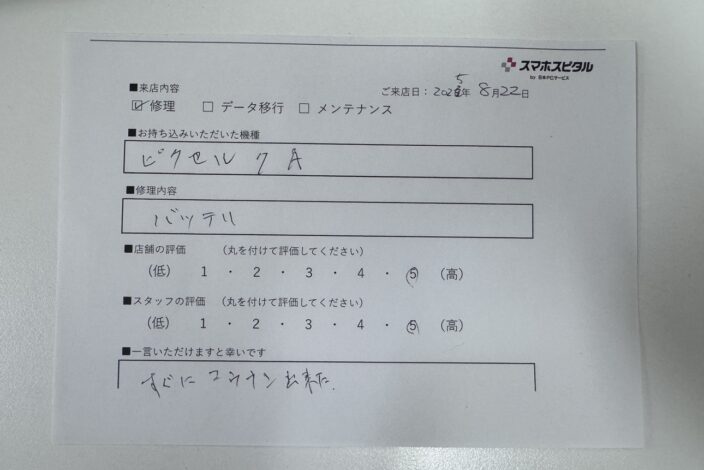 スマホスピタル
by 日本PCサービス
■来店内容
ご来店日：2025年 8月22日
☑ 修理 □ データ移行 □ メンテナンス
■お持ち込みいただいた機種
ピクセル 7 A
■修理内容
バッテリ
■店舗の評価 （丸を付けて評価してください）
（低） 1 ・ 2 ・ 3 ・ 4 ・ 5 （高）
■スタッフの評価 （丸を付けて評価してください）
（低） 1 ・ 2 ・ 3 ・ 4 ・ 5 （高）
■一言いただけますと幸いです
すぐに 出来た.